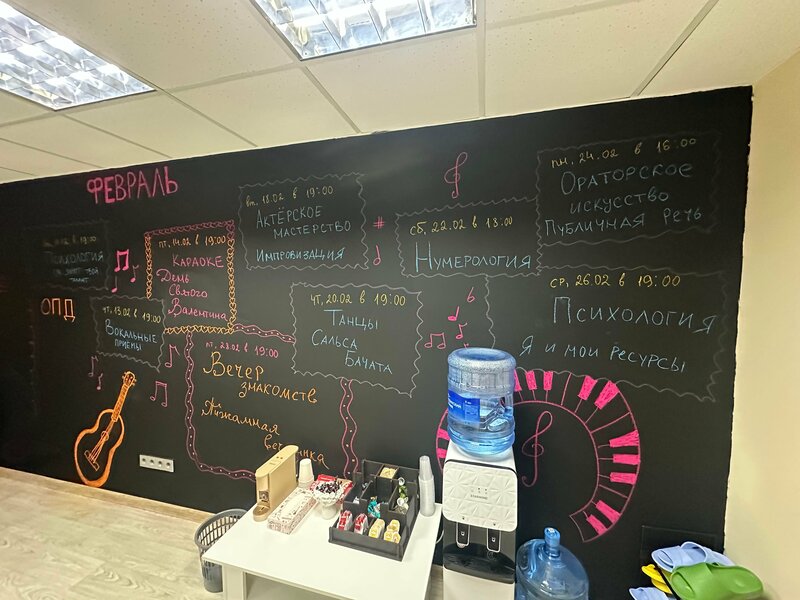 ФЕВРАЛЬ
в 19:00
Психология
ОПД
чт, 13.02 в 19:00
Вокальные
приёмы
пт, 14.02 в 19:00
Караоке
День
Святого
Валентина
вт, 18.02 в 19:00
Актёрское
мастерство
Импровизация
чт, 20.02 в 19:00
Танцы
Сальса
Бачата
пт, 21.02 в 19:00
Вечер
знакомств
Пижамная
вечеринка
сб, 22.02 в 13:00
Нумерология
пн, 24.02 в 16:00
Ораторское
искусство
Публичная речь
ср, 26.02 в 19:00
Психология
Я и мои ресурсы